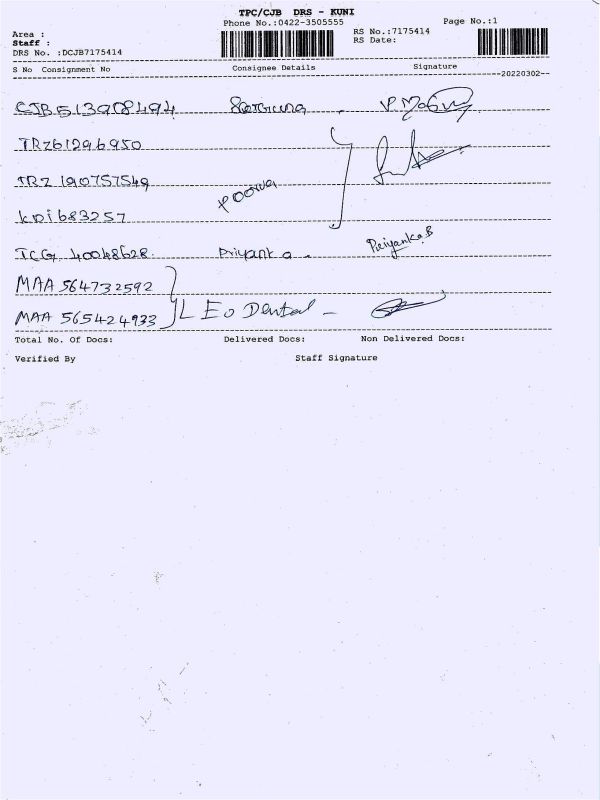 TPC/CJB DRS - KUNI
Phone No.:0422-3505555
Page No.:1
Area :
RS No.:7175414
Staff :
RS Date:
DRS No. :DCJB7175414
S No Consignment No Consignee Details Signature
--20220302--
CJB513908494
TRZ61296950
TRZ 190757549
Poorva
KDI683257
TCG 40048628 Priyanka - Priyanka.B
MAA 564732592
MAA 565424933 LEO Dental -
Total No. Of Docs: Delivered Docs: Non Delivered Docs:
Verified By Staff Signature